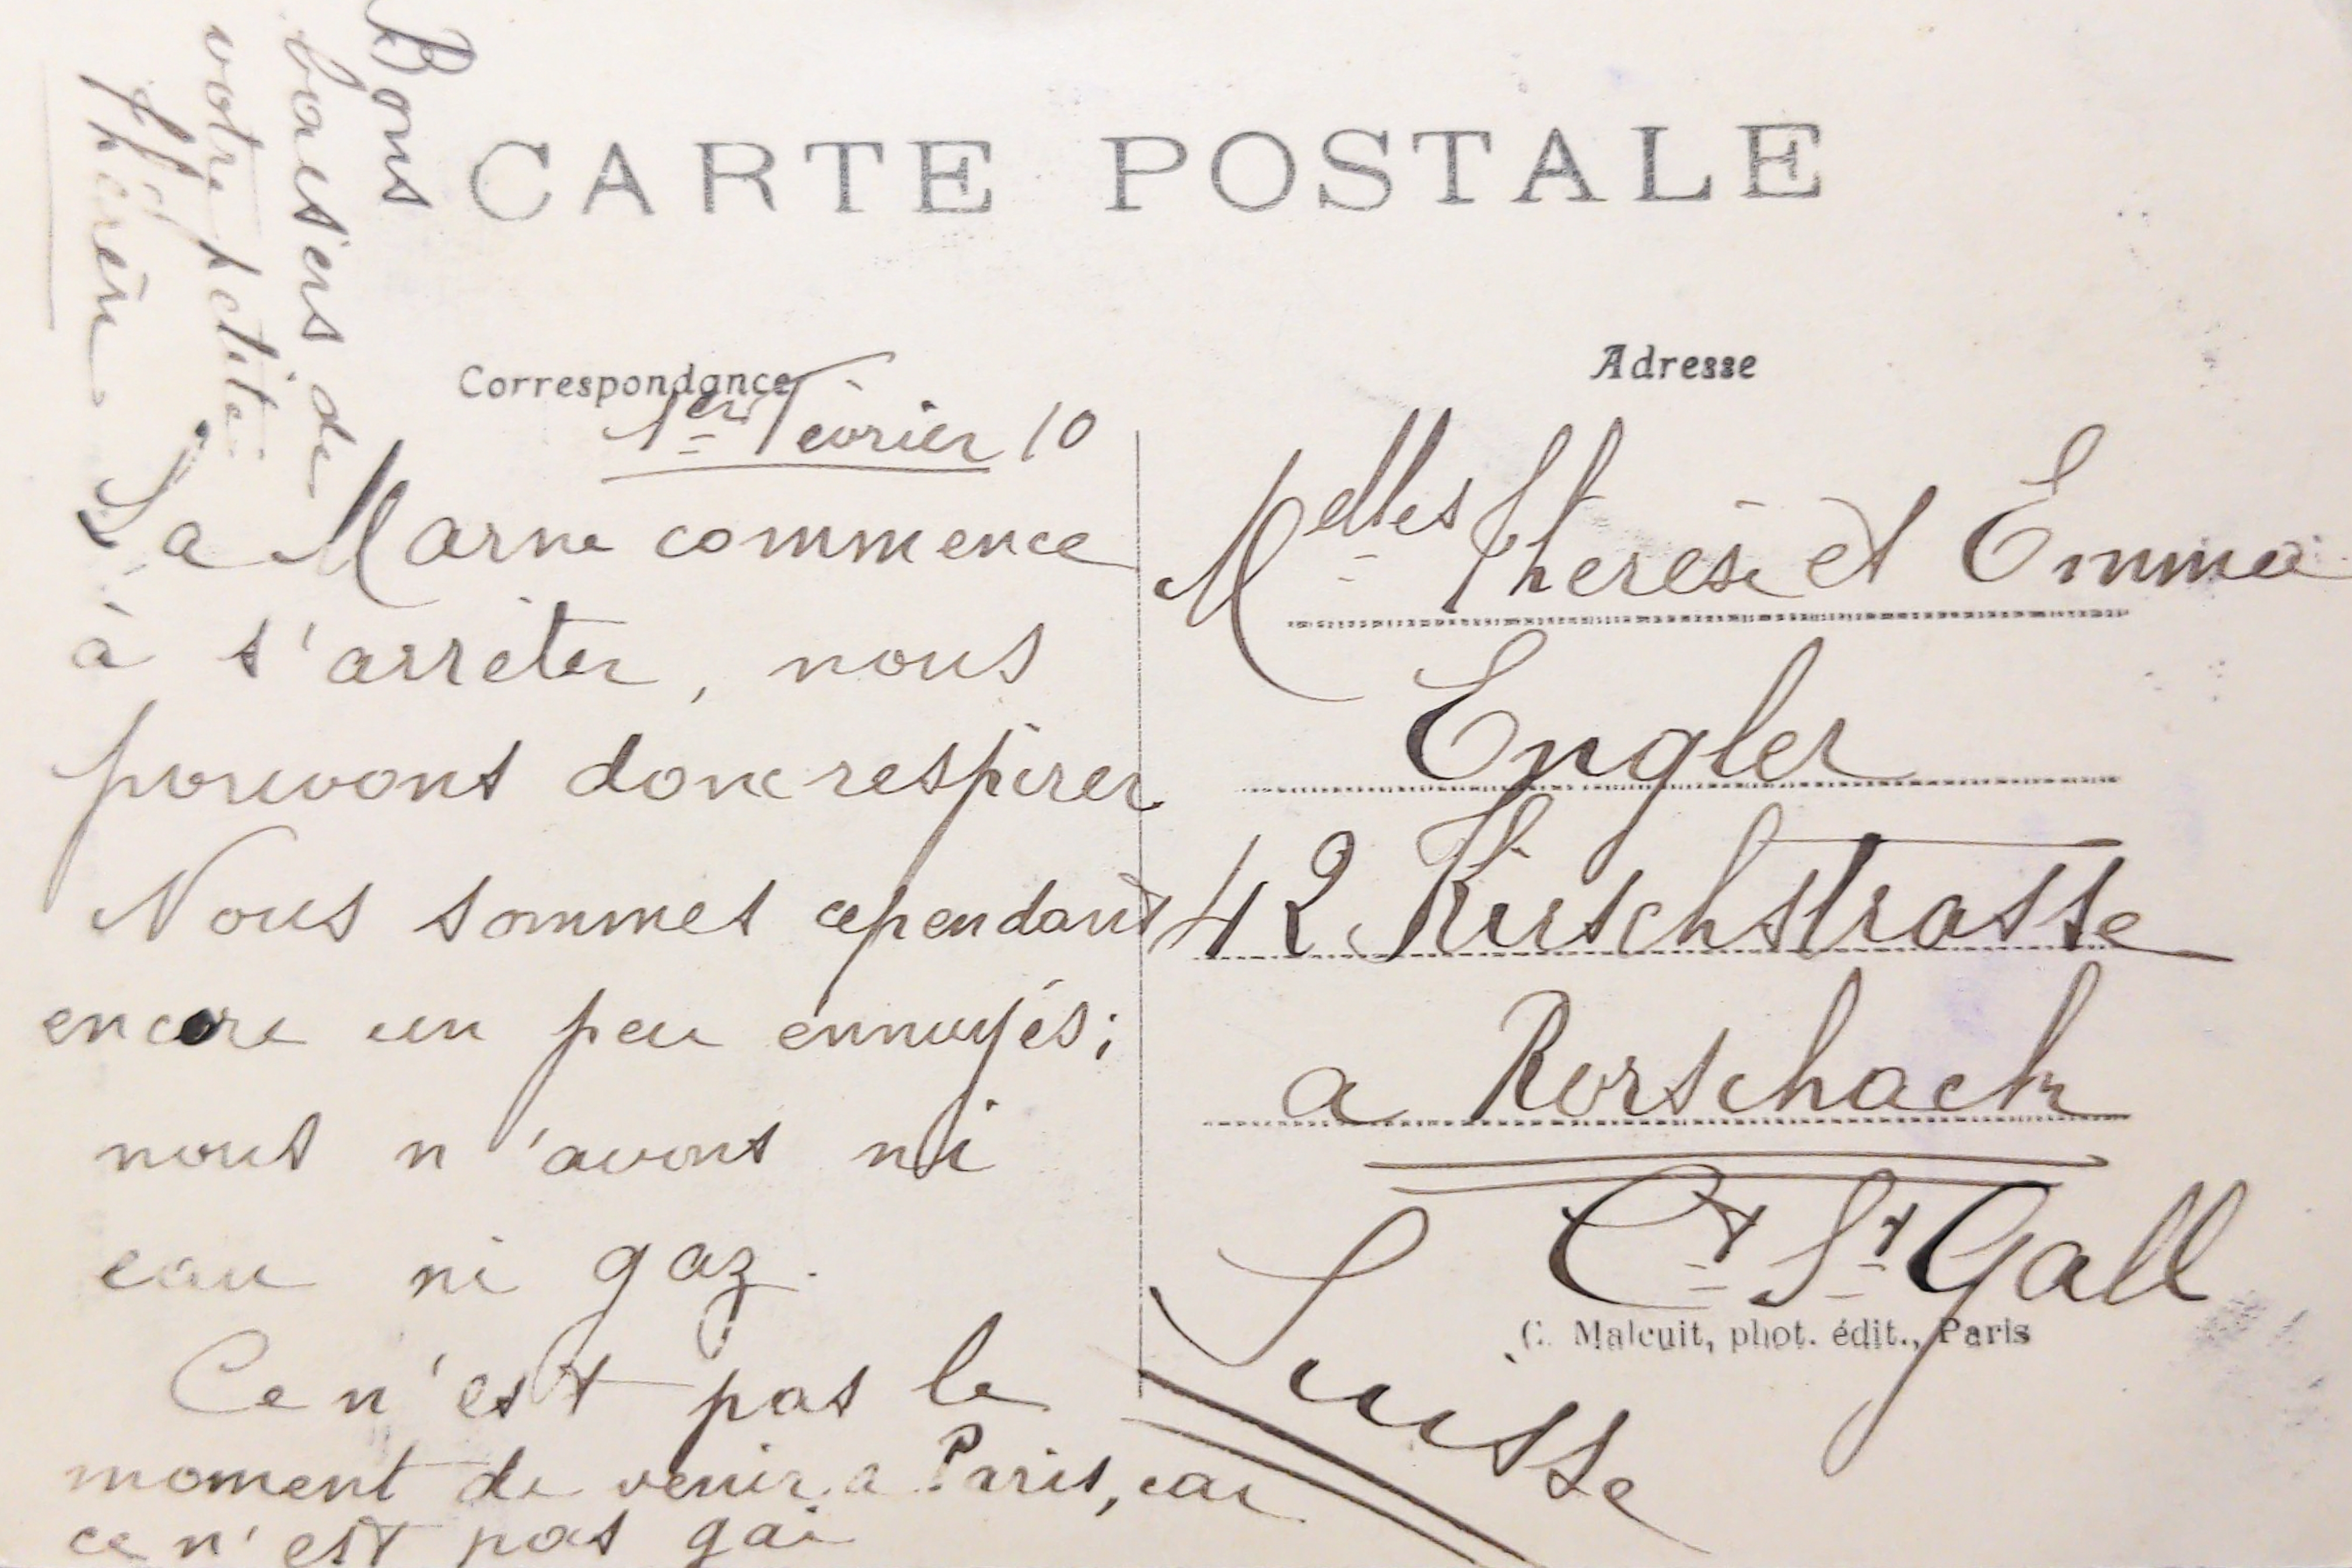 CARTE POSTALE
Correspondance
1er Février 10
La Marne commence
à s'arrêter, nous
pouvons donc respirer
Nous sommes cependant
encore un peu ennuyés;
nous n'avons ni
eau ni gaz.
Ce n'est pas le
moment de venir a Paris, car
ce n'est pas gai
Bons
baisers de
votre petite
Adresse
Melles Thérèse et Emma
Engler
42 Kirschstrasse
a Rorschach
Ct St Gall
Suisse
C. Malcuit, phot. édit., Paris